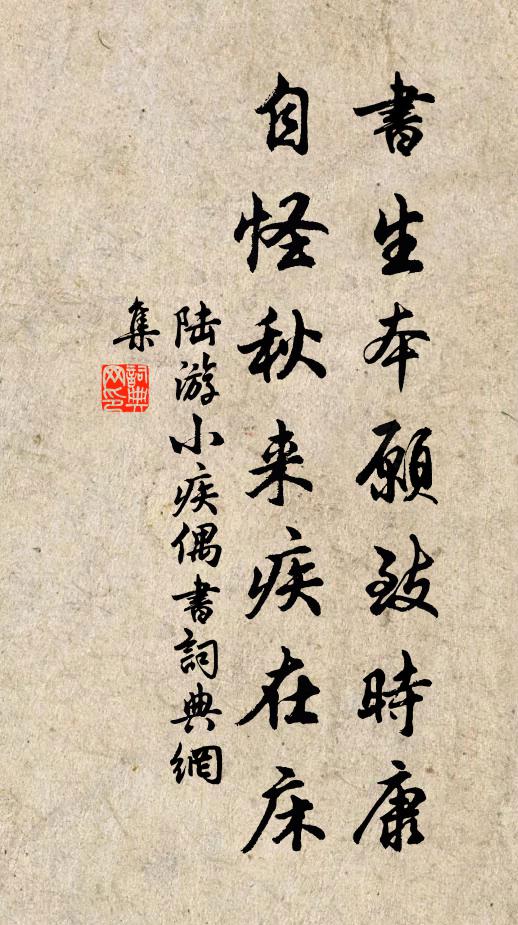 書生本願致時康
自怪秋来疾在床
陆游小疾偶書詞典網
集
詞典网印